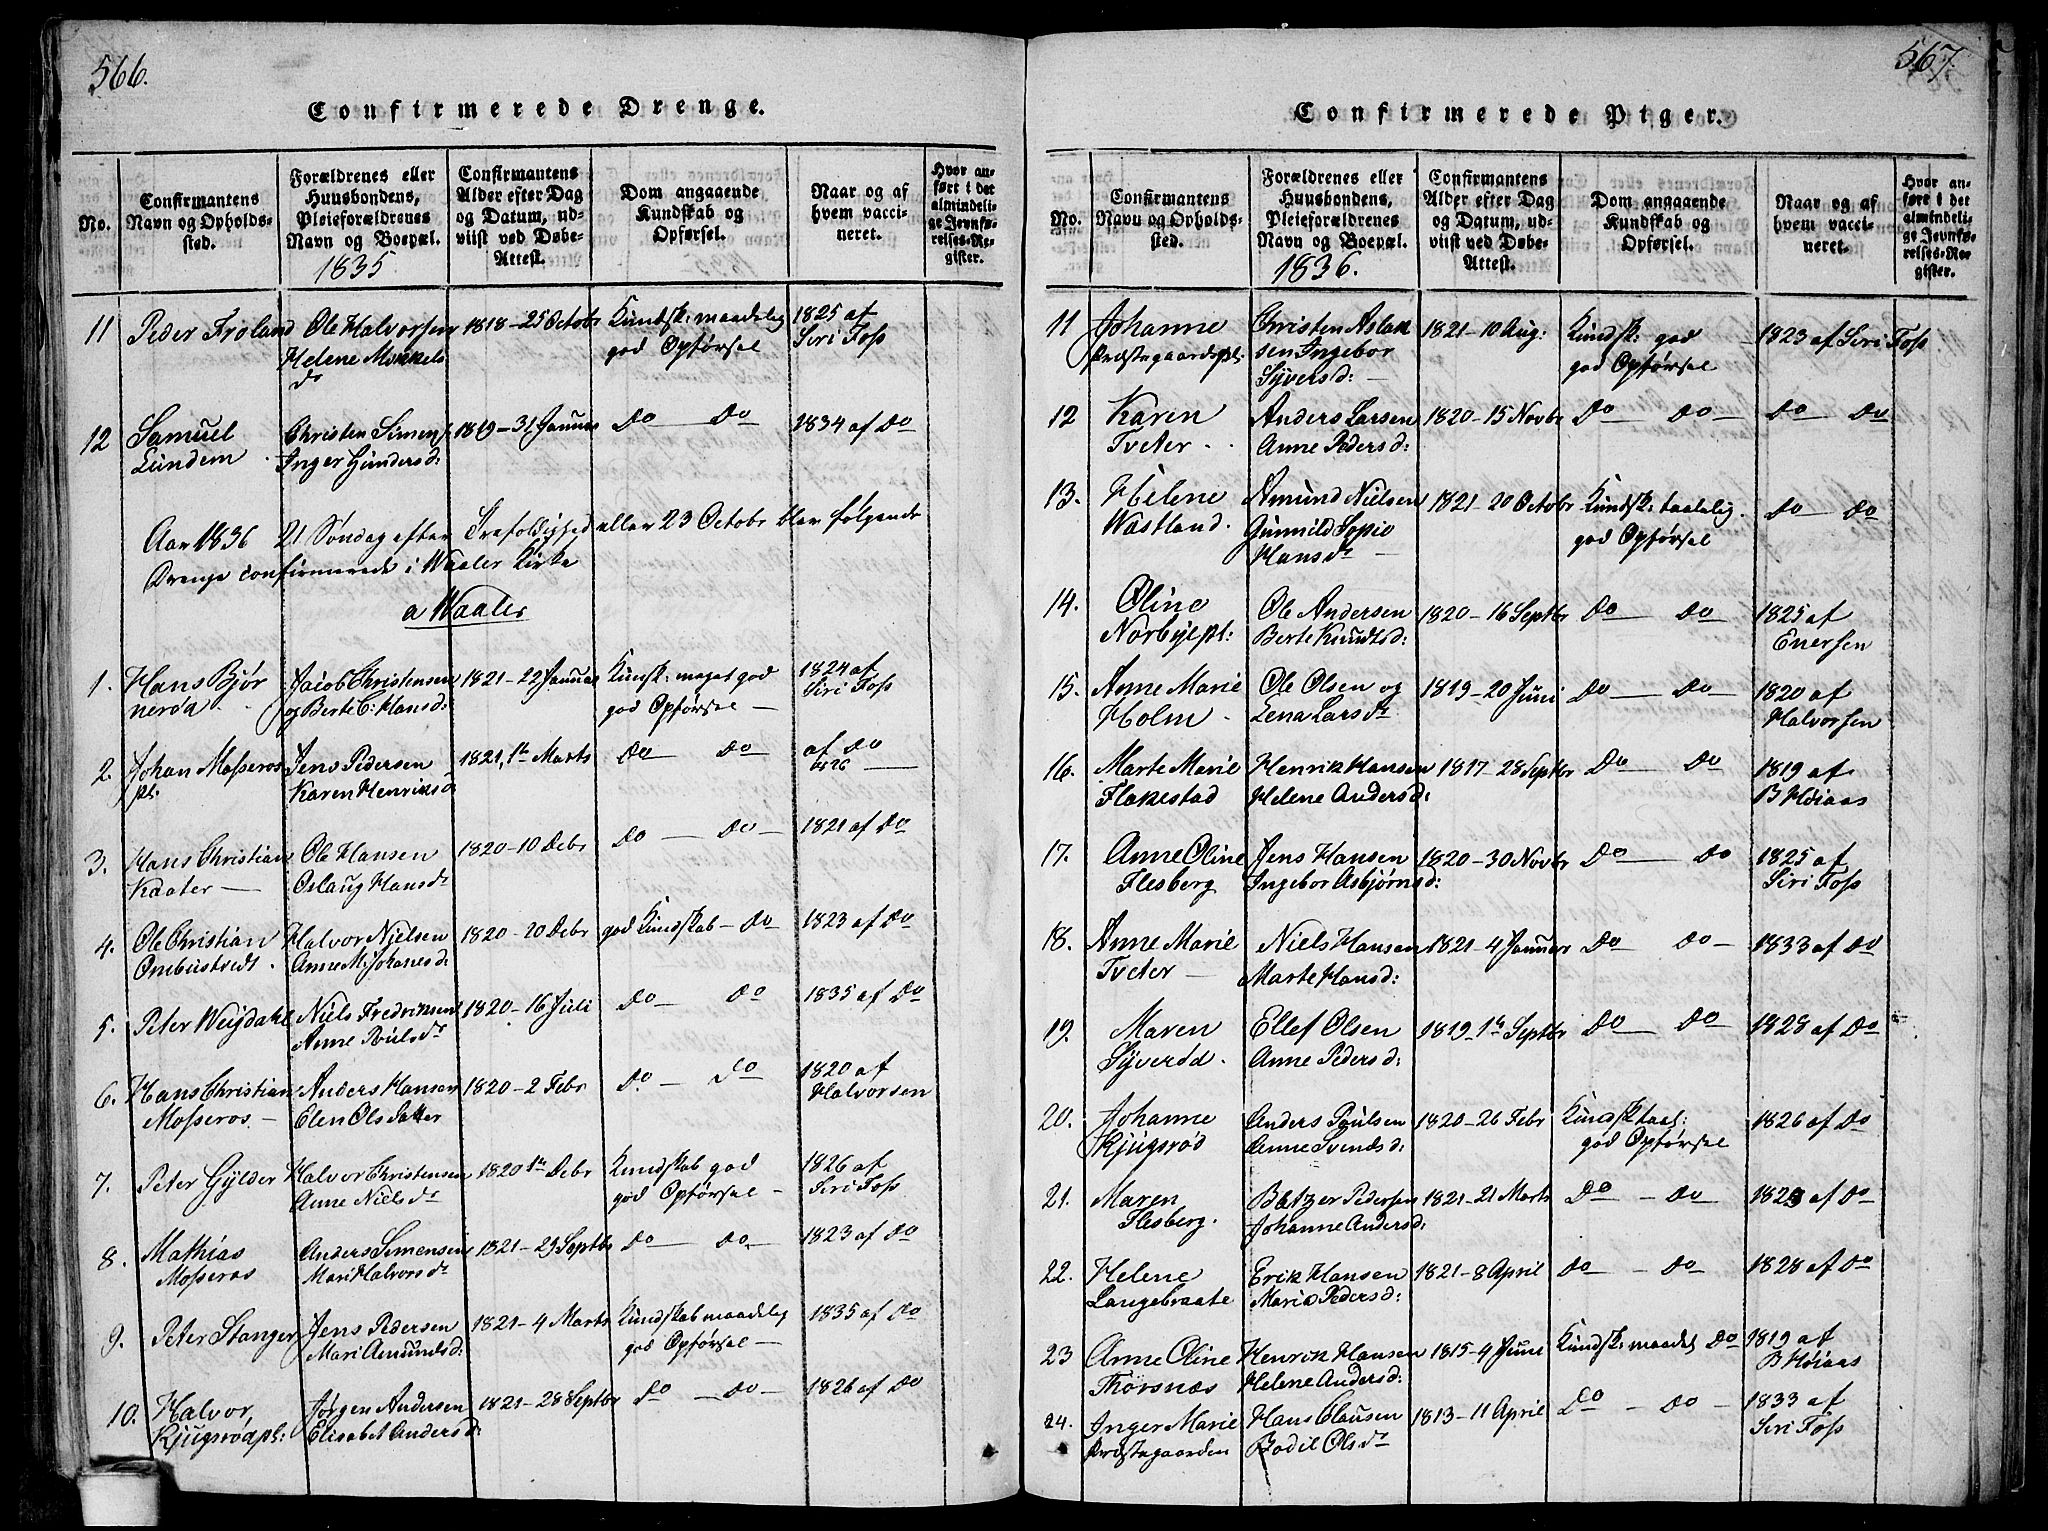 566.
Confirmerede Drenge.
No.
Confirmantens Navn og Opholdssted.
Forældrenes eller Huusbondens, Pleieforældrenes Navn og Boepæl.
1835
Confirmantens Alder efter Dag og Datum, udviist ved Døbe-Attest.
Dom angaaende Kundskab og Opførsel.
Naar og af hvem vaccineret.
Hvor anført i det almindelige Jevnførelses-Register.
11 Peder Froland Ole Halvorsen 1818-25 Octobr Kundsk: maadelig 1825 af
Helene Mikkels god Opførsel Siri Foss
do
12 Samuel Christen Simens 1819-31 Januar Do Do 1834 af Do
Lundem Inger Gunders d:
Aar 1836 21 Søndag efter Trefoldighed eller 23 Octobr blev følgende
Drenge confirmerede i Waaler Kirke
a Waaler
1. Hans Bjør Jacob Christensen 1821-22 Januar Kundsk: meget god 1824 af
nerød og Berte C: Hans d: god Opførsel Siri Foss
2. Johan Mosseros Jens Pedersen 1821, 1te Marts Do Do af Do
pl: Karen Henriks d 1826
3. Hans Christian Ole Hansen 1820-10 Debr Do Do 1821 af Do
Kaater Oslaug Hans dr
4. Ole Christian Halvor Nielsen 1820-20 Debr god Kundskab Do 1823 af Do
Ombustvedt. Anne M. Johanes d:
5. Peter Weydahl Niels Fredriksen 1820-16 Juli Do Do 1835 af Do
Anne Pouls dr
6. Hans Christian Anders Hansen 1820-2 Febr Do Do 1820 af
Mosseros Elen Ols Datter Halvorsen
7. Peter Gylder Halvor Christensen 1820 1te Debr Kundskab god 1826 af
Anne Niels dr god Opførsel Siri Foss
8. Mathias Anders Simensen 1821-29 Septbr Do Do 1823 af Do
Mosseros Mari Halvors dr
9. Peter Stanger Jens Pedersen 1821-4 Marts Kundskab maadelig 1835 af Do
Mari Amunds d: god Opførsel
10. Halvor, Jørgen Andersen 1821-28 Septbr Do Do 1826 af Do
Kjugsrødpl: Elisabet Anders d:
567.
Confirmerede Piger.
No.
Confirmantens Navn og Opholdssted.
Forældrenes eller Huusbondens, Pleieforældrenes Navn og Boepæl.
1836.
Confirmantens Alder efter Dag og Datum, udviist ved Døbe-Attest.
Dom angaaende Kundskab og Opførsel.
Naar og af hvem vaccineret.
Hvor anført i det almindelige Jevnførelses-Register.
11 Johanne Christen Aslak 1821-10 Aug: Kundsk: god 1823 af Siri Foss
Præstegaardspl: sen Ingebor god Opførsel
Syvers d:
12 Karen Anders Larsen 1820-15 Novbr Do Do Do Do
Tveter Anne Peders d:
13. Helene Amund Nielsen 1821-20 Octobr Kundsk: taalelig. Do Do
Wastland. Gunnild Sopie god Opførsel
Hans dr
14. Oline Ole Andersen 1820-16 Septbr Do Do 1825 af
Norbylpl: Berte Knudts d: Enersen
15. Anne Marie Ole Olsen og 1819-20 Juni Do Do 1820 af
Holm Lena Lars dr Halvorsen
16. Marte Marie Henrik Hansen 1817-28 Septbr Do Do 1819 af
Flakestad Helene Anders d: B Høiaas
17. Anne Oline Jens Hansen 1820-30 Novbr Do Do 1825 af
Flesberg Ingebor Asbjørns d: Siri Foss
18. Anne Marie Niels Hansen 1821-4 Januar Do Do 1833 af Do
Tveter Marte Hans d:
19. Maren Ellef Olsen 1819-1te Septbr Do Do 1828 af Do
Syverød. Anne Peders d:
20. Johanne Anders Poulsen 1820-26 Febr Kundsk taal: 1826 af Do
Kjugsrød Anne Svends d: god Opførsel
21. Maren Betzer Pedersen 1821-21 Marts Do Do 1823 af Do
Flesberg. Johanne Anders d:
22. Helene Erik Hansen 1821-8 April Do Do 1828 af Do
Langebraate Maria Peders d:
23 Anne Oline Henrik Hansen 1815-4 Juni Kundsk: maadel Do 1819 af
Thorsnæs Helene Anders d: B Høiaas
24. Inger Marie Hans Clausen 1813-11 April Do Do 1833 af
Præstegaarden Bodil Ols dr Siri Foss